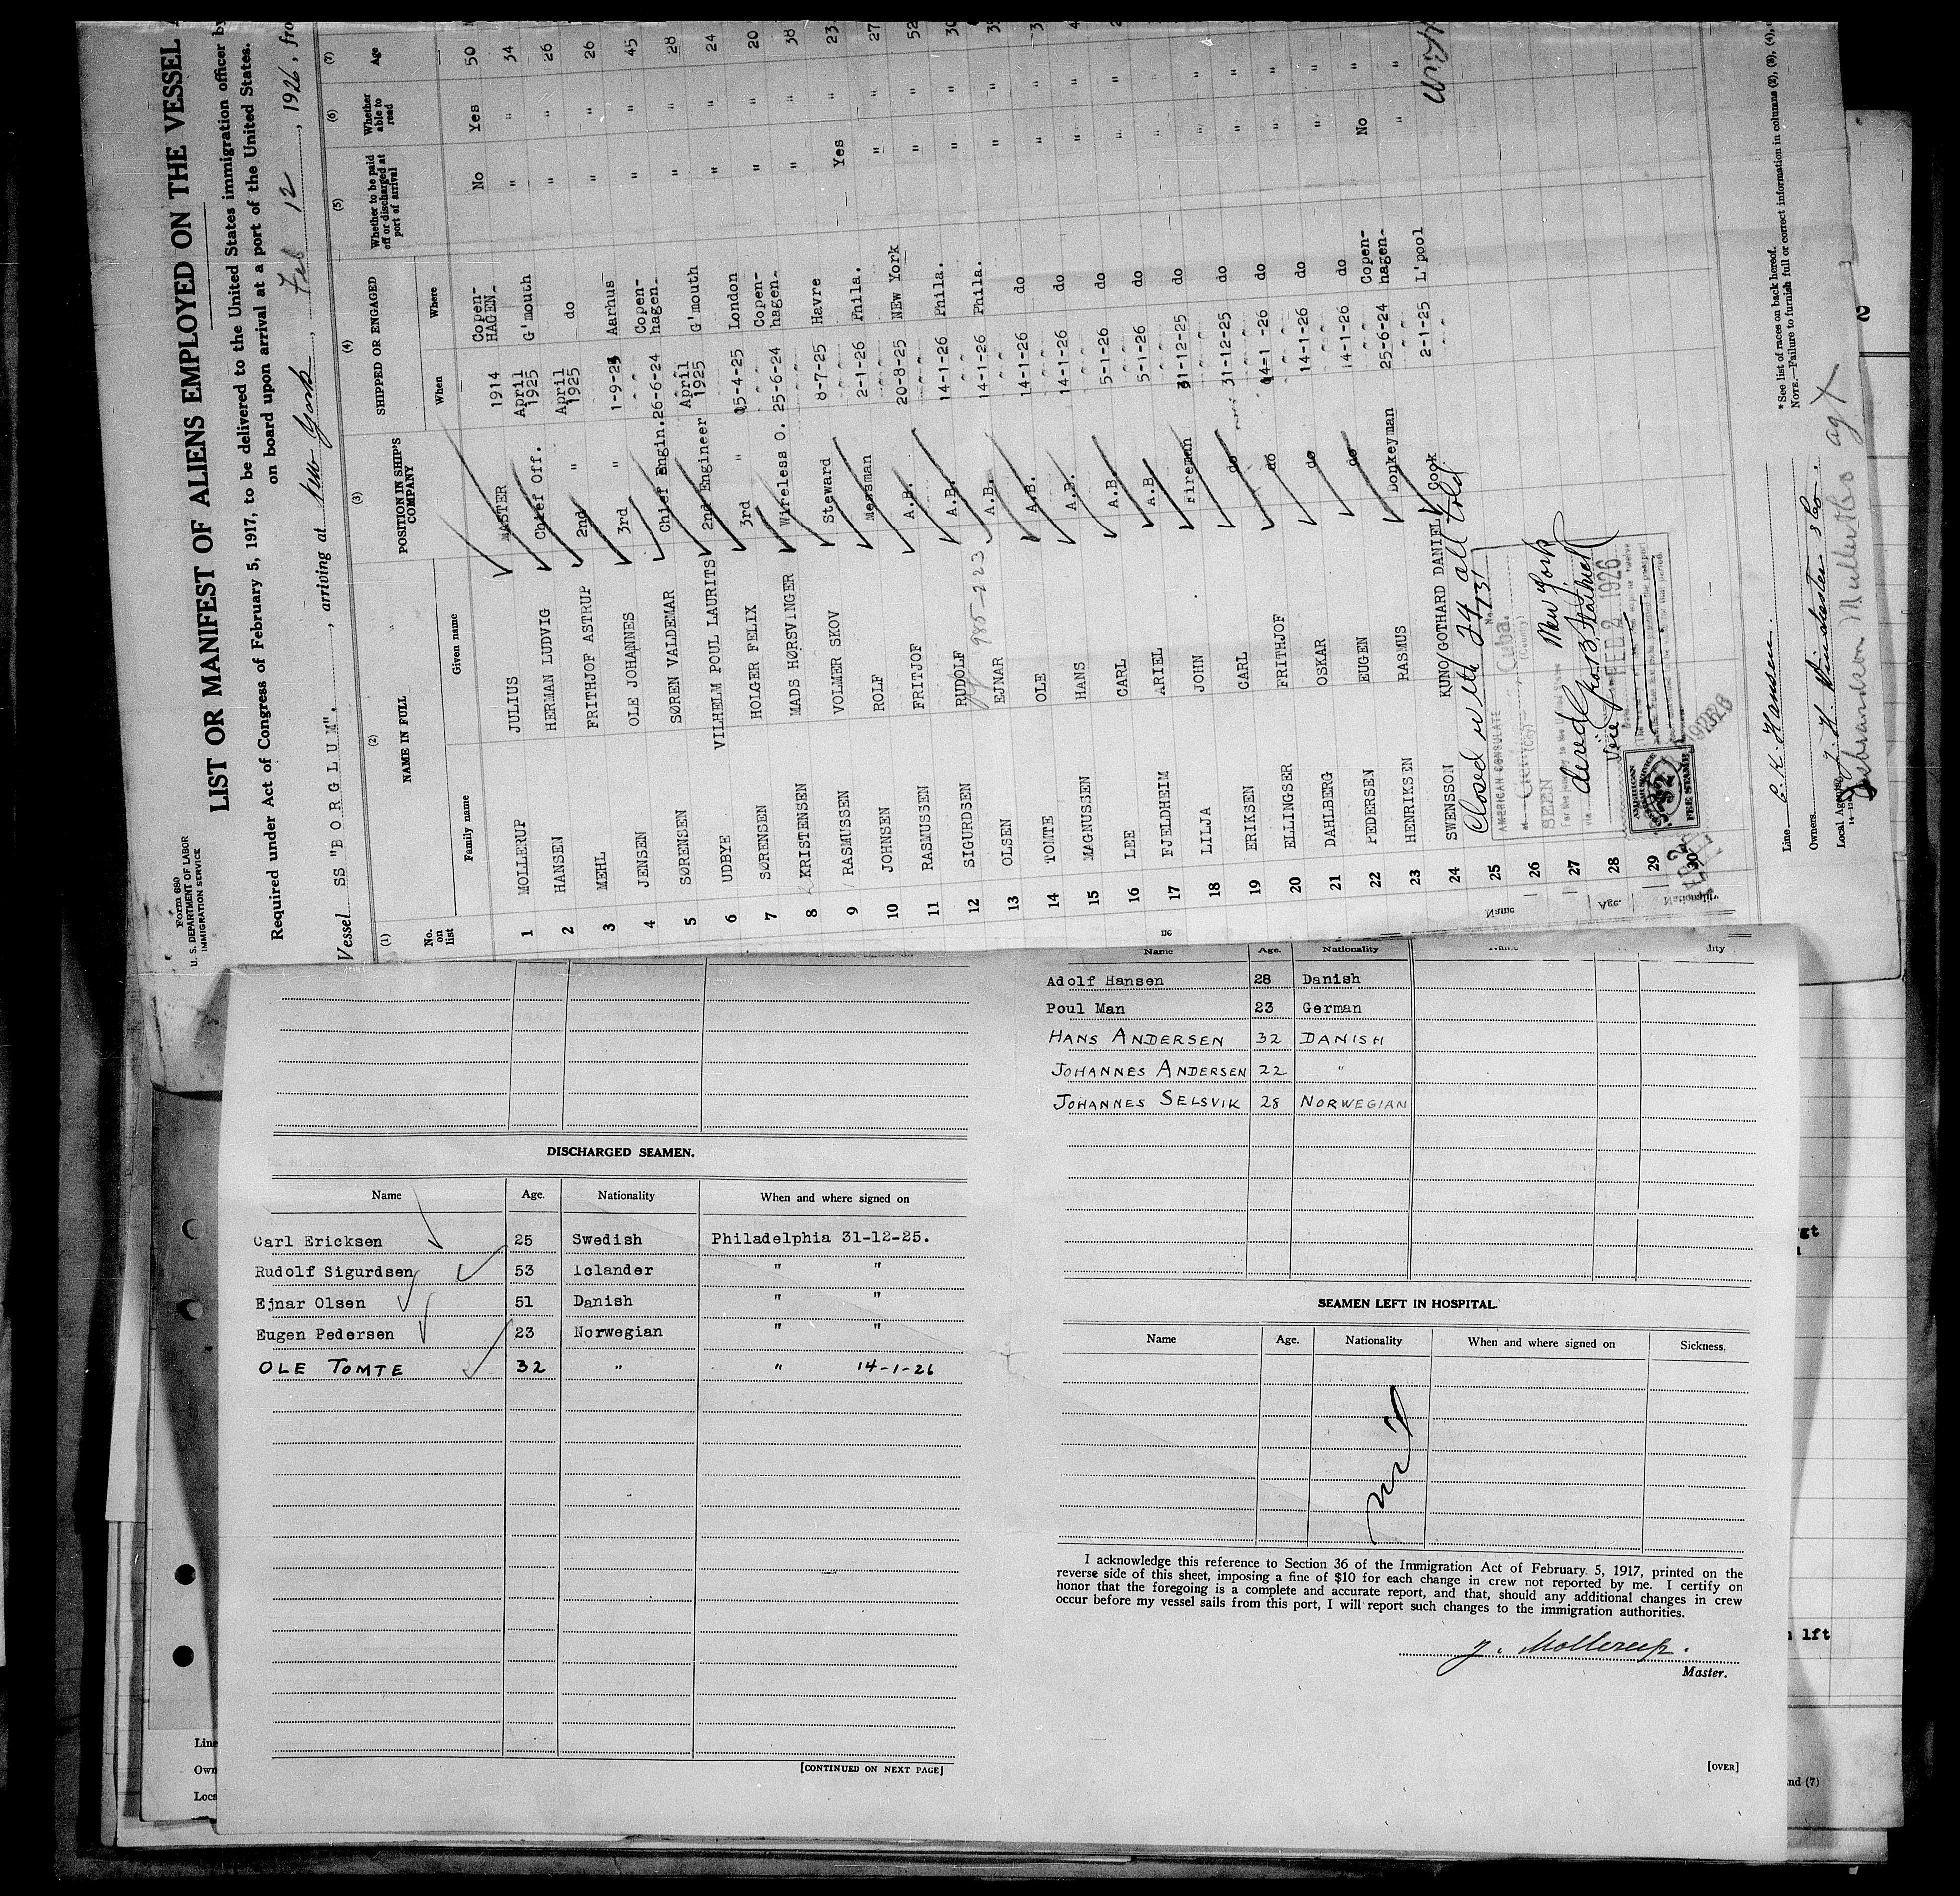 Form 680
U. S. DEPARTMENT OF LABOR
IMMIGRATION SERVICE
LIST OR MANIFEST OF ALIENS EMPLOYED ON THE VESSEL
Required under Act of Congress of February 5, 1917, to be delivered to the United States immigration officer by
on board upon arrival at a port of the United States.
Vessel SS "BORGLUM", arriving at New York, Feb 12, 1926, fro
(1) (2) (3) (4) (5) (6) (7)
No. on list NAME IN FULL POSITION IN SHIP'S COMPANY SHIPPED OR ENGAGED Whether to be paid off or discharged at port of arrival Whether able to read Age
Family name Given name When Where
1 MOLLERUP JULIUS MASTER 1914 Copen-HAGEN. No Yes 50
2 HANSEN HERMAN LUDVIG Chief Off. April 1925 G'mouth " " 34
3 MEHL FRITHJOF ASTRUP 2nd " April 1925 do " " 26
4 JENSEN OLE JOHANNES 3rd " 1-9-25 Aarhus " " 26
5 SØRENSEN SØREN VALDEMAR Chief Engin. 26-6-24 Copen-hagen. " " 45
6 UDBYE VILHELM POUL LAURITS 2nd Engineer April 1925 G'mouth " " 28
7 SØRENSEN HOLGER FELIX 3rd " 15-4-25 London " " 24
8 KRISTENSEN MADS HØRSVINGER Wireless O. 25-6-24 Copen-hagen. " " 20
9 RASMUSSEN VOLMER SKOV Steward 8-7-25 Havre " " 38
10 JOHNSEN ROLF Messman 2-1-26 Phila. Yes " 23
11 RASMUSSEN FRITJOF A.B. 20-8-25 NEW York " " 27
12 SIGURDSEN RUDOLF A.B. 14-1-26 Phila. " " 52
13 OLSEN EJNAR A.B. 14-1-26 Phila. " "
985-223
14 TOMTE OLE A.B. 14-1-26 do " "
15 MAGNUSSEN HANS A.B. 14-1-26 do " "
16 LEE CARL A.B. 5-1-26 do " "
17 FJELDHEIM ARIEL A.B. 5-1-26 do " "
18 LILJA JOHN Fireman 31-12-25 do " "
19 ERIKSEN CARL do 31-12-25 do " "
20 ELLINGSER FRITHJOF do 14-1-26 do " "
21 DAHLBERG OSKAR do 14-1-26 do " "
22 PEDERSEN EUGEN do 14-1-26 do " "
23 HENRIKSEN RASMUS Donkeyman 25-6-24 Copen-hagen. No "
24 SWENSSON KUNO/GOTHARD DANIEL Cook 2-1-25 L'pool " "
25
Closed with 24 all told
26
AMERICAN CONSULATE
Cuba.
27
SEEN
New York
28
FEB 2 1926
29
AMERICAN
FEE STAMP
30
* See list of races on back hereof.
NOTE.—Failure to furnish full or correct information in columns (2), (3), (4),
Line C. K. Hansen.
Owners
Local Agents J. H. Winchester & Co.
Name
Age.
Name Age. Nationality
Adolf Hansen 28 Danish
Poul Man 23 German
HANS ANDERSEN 32 DANISH
JOHANNES ANDERSEN 22 "
JOHANNES SELSVIK 28 NORWEGIAN
DISCHARGED SEAMEN.
Name Age. Nationality When and where signed on
Carl Ericksen 25 Swedish Philadelphia 31-12-25.
Rudolf Sigurdsen 53 Iclander " "
Ejnar Olsen 51 Danish " "
Eugen Pedersen 23 Norwegian " "
OLE TOMTE 32 " " 14-1-26
[CONTINUED ON NEXT PAGE]
SEAMEN LEFT IN HOSPITAL.
Name Age. Nationality When and where signed on Sickness.
I acknowledge this reference to Section 36 of the Immigration Act of February 5, 1917, printed on the
reverse side of this sheet, imposing a fine of $10 for each change in crew not reported by me. I certify on
honor that the foregoing is a complete and accurate report, and that, should any additional changes in crew
occur before my vessel sails from this port, I will report such changes to the immigration authorities.
J. Mollerup.
Master.
[OVER]
Line
Own
Loca
lft
nd (7)